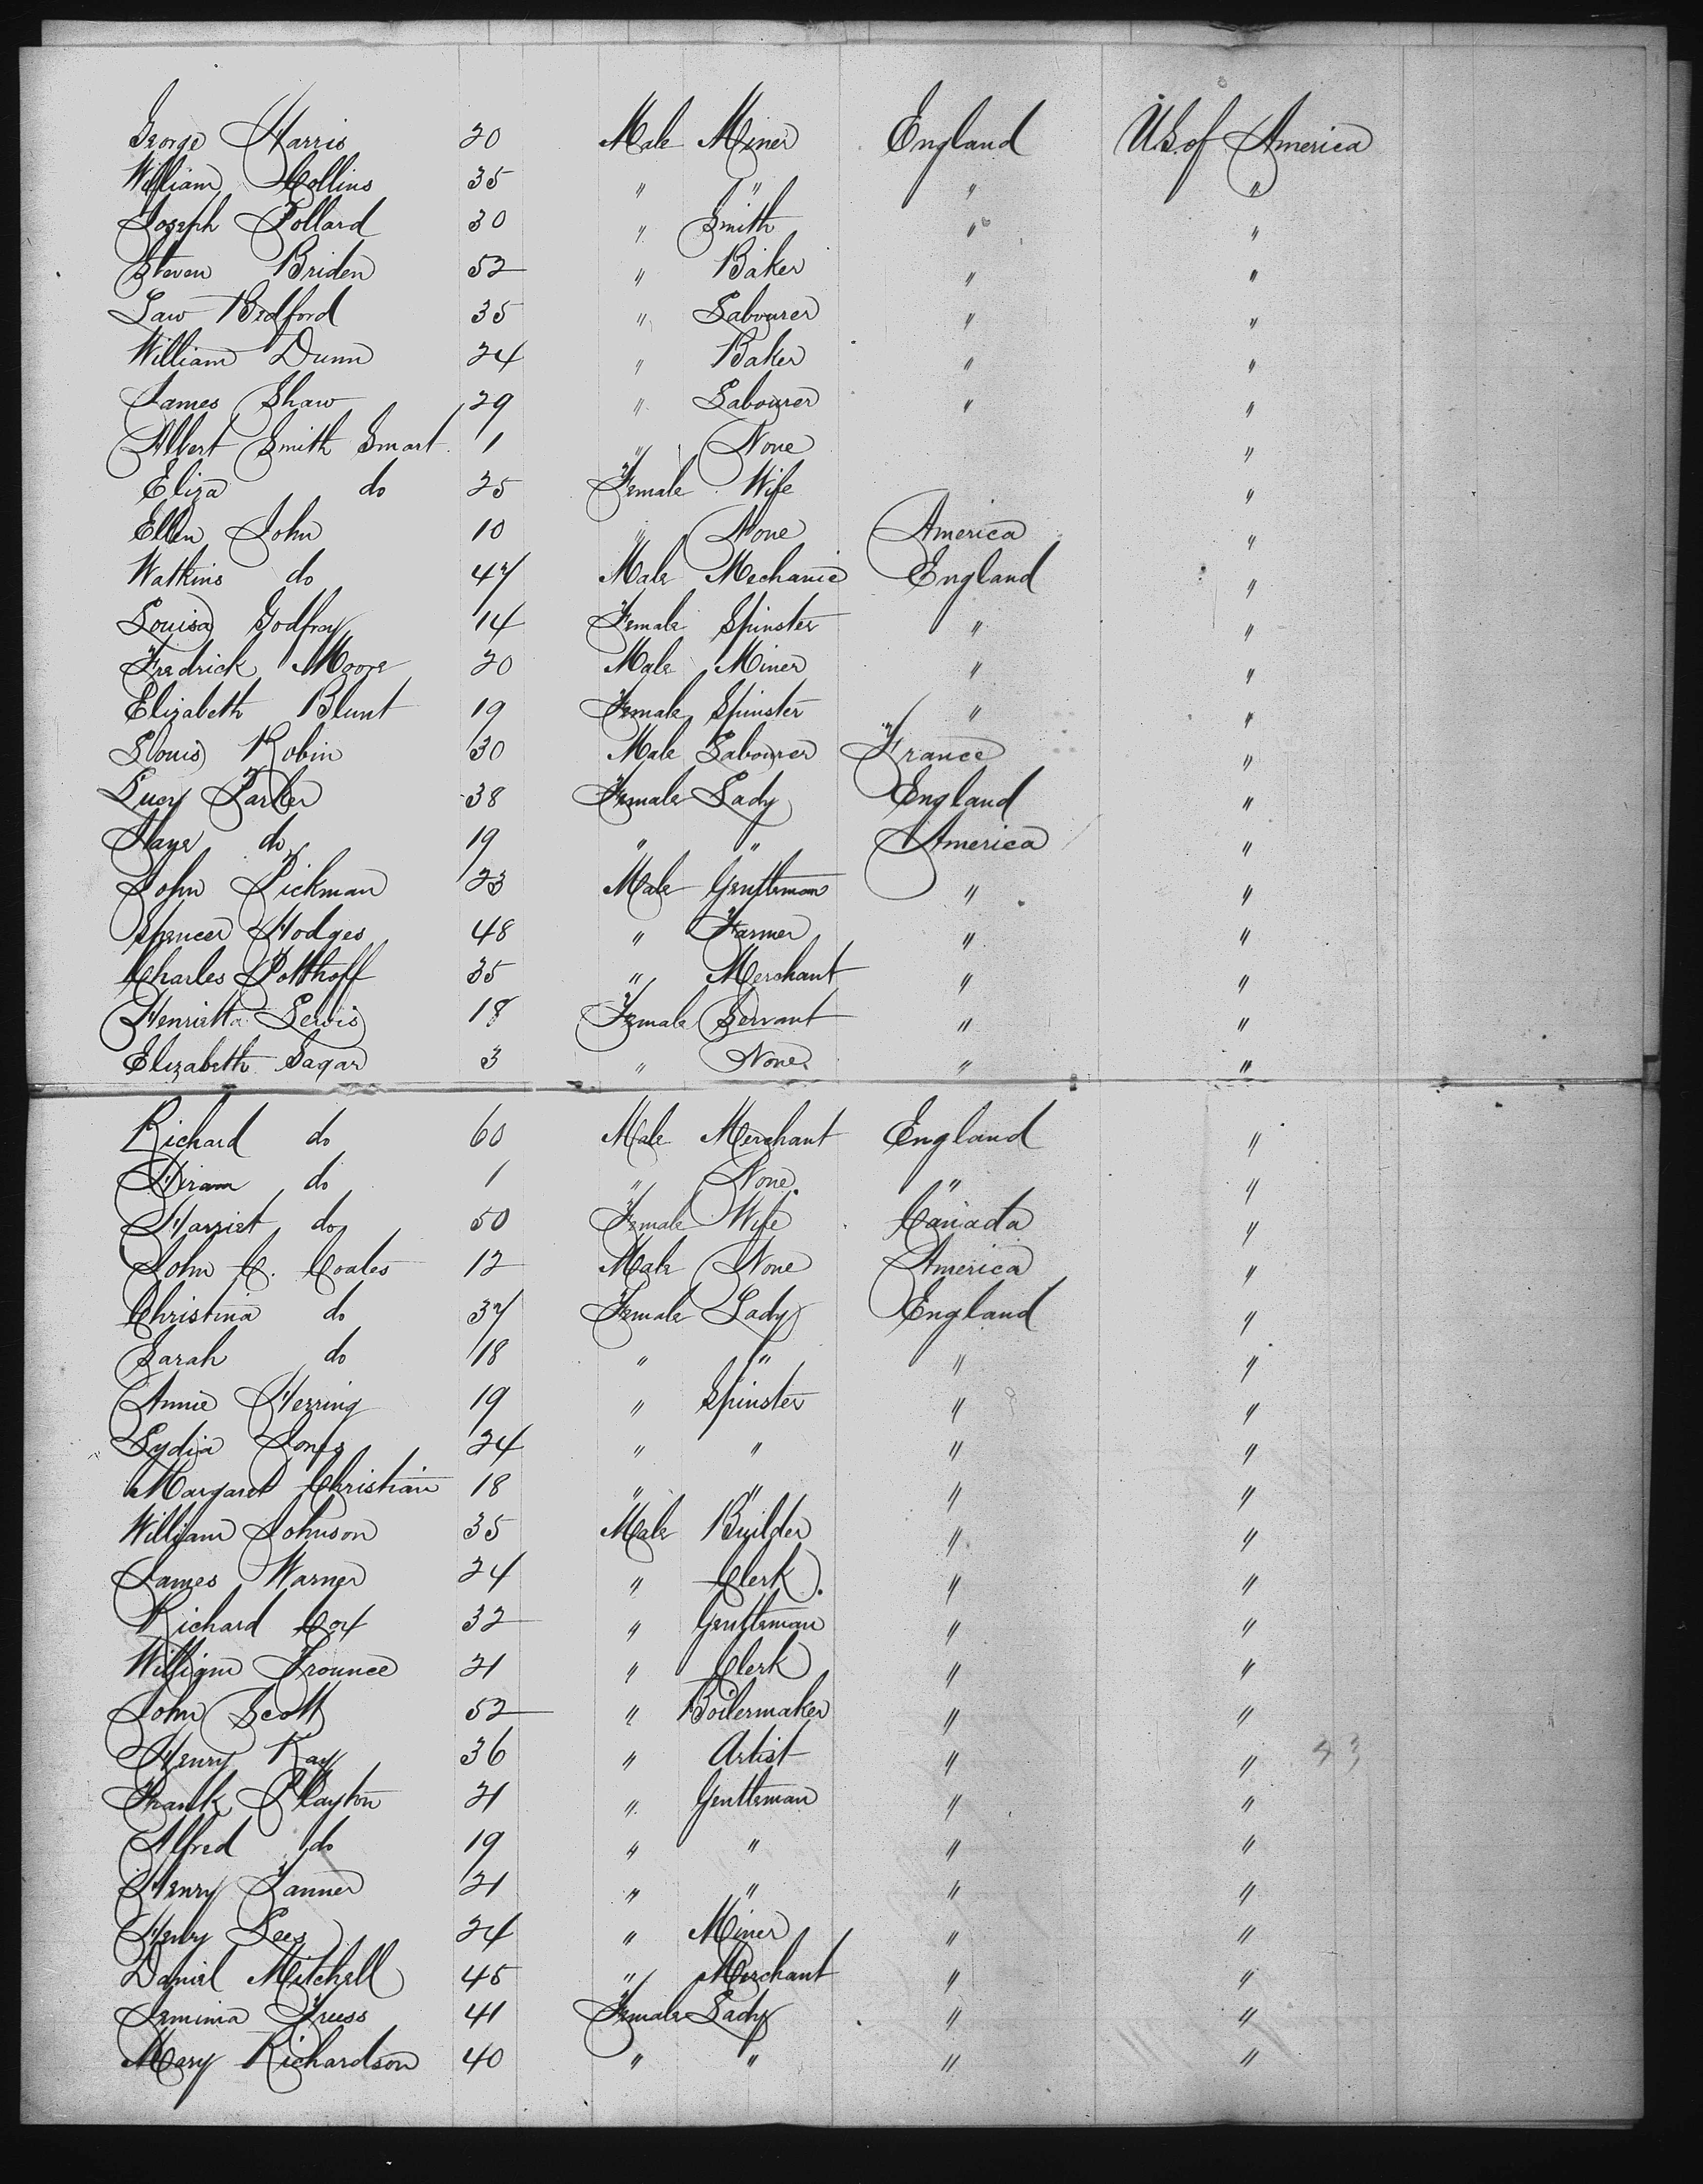 George Harris 20 Male Miner England U.S. of America
William Collins 35 " " " "
Joseph Pollard 30 " Smith " "
Steven Briden 52 " Baker " "
Law Bedford 35 " Labourer " "
William Dunn 24 " Baker " "
James Shaw 29 " Labourer " "
Albert Smith Smart 1 " None "
Eliza do 25 Female Wife "
Ellen John 10 " None America "
Watkins do 47 Male Mechanic England "
Louisa Godfray 14 Female Spinster " "
Fredrick Moore 20 Male Miner " "
Elizabeth Blunt 19 Female Spinster " "
Louis Robin 30 Male Labourer France "
Lucy Parker 38 Female Lady England "
do 19 " " America "
John Pickman 23 Male Gentleman " "
Spencer Hodges 48 " Farmer " "
Charles Potthoff 35 " Merchant " "
Henrietta Lewis 18 Female Servant " "
Elizabeth Sagar 3 " None " "
Richard do 60 Male Merchant England "
Hiram do 1 " None " "
Harriet do 50 Female Wife Canada "
John C. Coales 12 Male None America "
Christina do 37 Female Lady England "
Sarah do 18 " " " "
Annie Herring 19 " Spinster " "
Lydia Jones 24 " " " "
Margaret Christian 18 " " " "
William Johnson 35 Male Builder " "
James Warner 24 " Clerk " "
Richard Cox 32 " Gentleman " "
William Trounce 21 " Clerk " "
John Scott 52 " Boilermaker " "
Henry Kay 36 " Artist " "
Frank Clayton 21 " Gentleman " "
Alfred do 19 " " " "
Henry Tanner 21 " " " "
Henry Lees 24 " Miner " "
Daniel Mitchell 45 " Merchant " "
Jemima Truss 41 Female Lady " "
Mary Richardson 40 " " " "